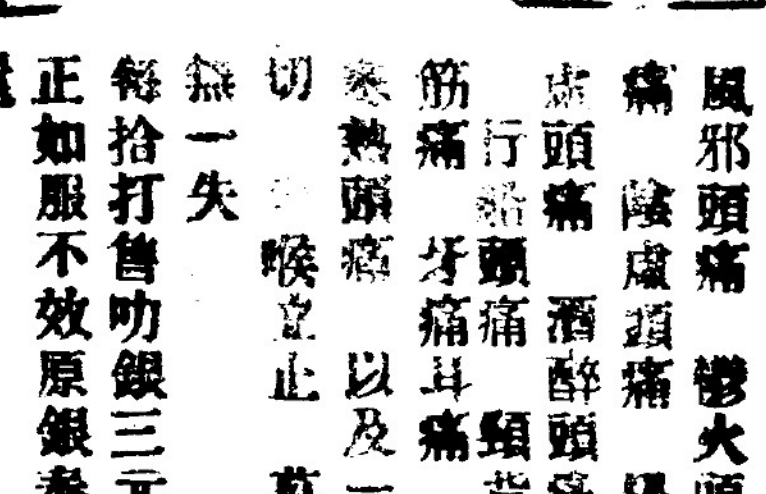 風邪頭痛 鬱火頭
痛 陰虛頭痛
虛頭痛 酒醉頭痛
行路頭痛 頸背
筋痛 牙痛耳痛
寒熱頭痛 以及一
切 喉立止
無一失
每拾打售叻銀三元
正如服不效原銀奉